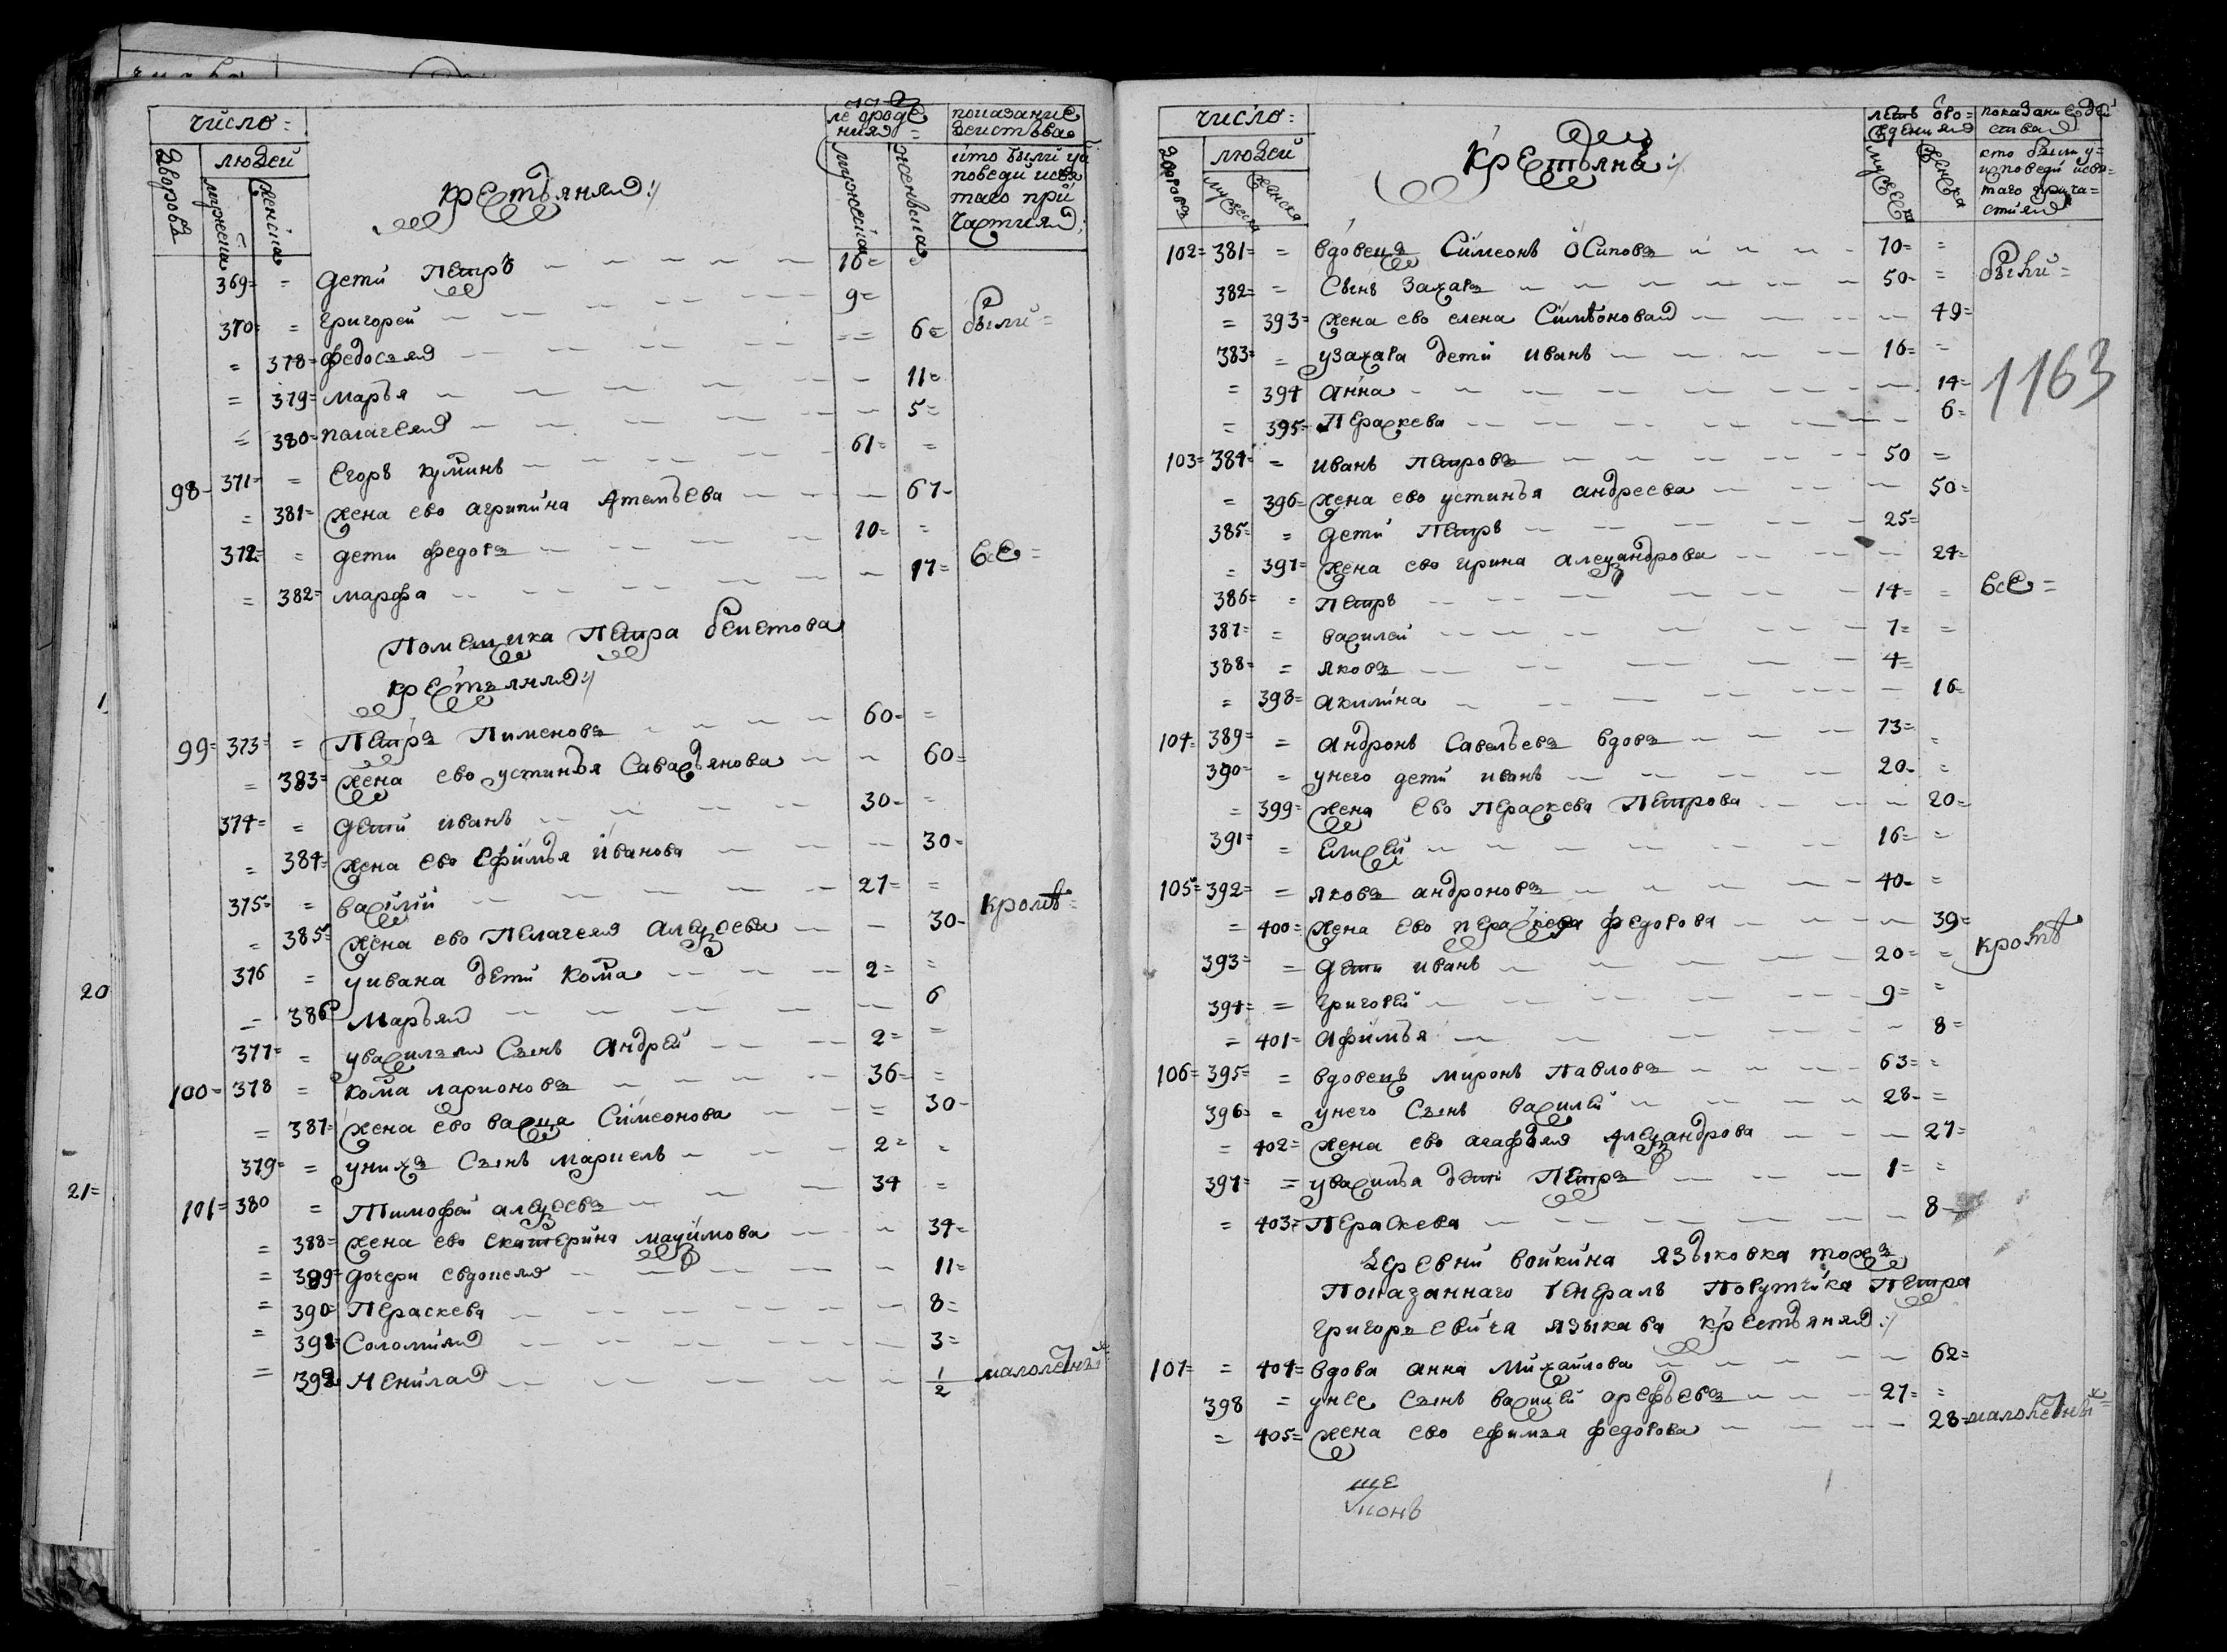 число
людей
дворовъ
мужеска
женска
крестьяня
лет рожде
ния
мужеска
женска
показание
действа
кто были у и
поведи и свя
таго при
частия
369 = дети Петръ 10
370 = Григорей 9
= 378 федосья 6 были
= 379 марья 11
= 380 палагея 5
98 371 = Егоръ кузминъ 61
= 381 жена ево агрипина Артемьева 67
372 = дети федоръ 10
= 382 марфа 17 все
Помещика Петра бекетова
крестьяня
99 373 = Петръ Пименовъ 60
= 383 жена ево устинья Савастьянова 60
374 = дети иванъ 30
= 384 жена ево Ефимья иванова 30
375 = василий 27
= 385 жена ево Пелагея алексеева 30 кроме
376 = у ивана дети Козма 2
= 386 Марья 6
377 = у василья Сынъ Андрей 2
100 378 = козма ларионовъ 36
= 387 жена ево васса Симеонова 30
379 = у нихъ Сынъ маркелъ 2
101 380 = Тимофей алексеевъ 34
= 388 жена ево екатерина максимова 34
= 389 дочери евдокея 11
= 390 Пераскева 8
= 391 Соломия 3
= 392 Ненила 1/2 малолетныхъ
число
людей
дворовъ
мужеска
женска
крестьяна
летъ от ро
ждения
мужеска
женска
показание дей
ства
кто были у
исповеди и свя
таго прича
стия
102 381 = вдовецъ Симеонъ Осиповъ 70 были
382 = Сынъ Захаръ 50
= 393 жена ево елена Симеонова 49
383 = у захара дети иванъ 16
1163
= 394 анна 14
= 395 Пераскева 6
103 384 = иванъ Петровъ 50
= 396 жена ево устинья андреева 50
385 = дети Петръ 25
= 397 жена ево ирина александрова 24
386 = Петръ 14 все
387 = василей 7
388 = яковъ 4
= 398 акилина 16
104 389 = андронъ Савельевъ вдовъ 73
390 = у него дети иванъ 20
= 399 жена Ево Пераскева Петрова 20
391 = Елисей 16
105 392 = яковъ андроновъ 40
= 400 жена Ево пераскева федорова 39 кроме
393 = дети иванъ 20
394 = григорей 9
= 401 Афимья 8
106 395 = вдовецъ миронъ Павловъ 63
396 = у него Сынъ василей 28
= 402 жена ево агафья Александрова 27
397 = у василья дети Петръ 1
= 403 Пераскева 8
Деревни войкина языковка тожъ
Показаннаго Генералъ Порутчика Петра
Григорьевича языкава крестьяня
107 = 404 вдова анна Михайлова 62
398 = у нее Сынъ василей арефьевъ 27
= 405 жена ево ефимья федорова 28 малолетны